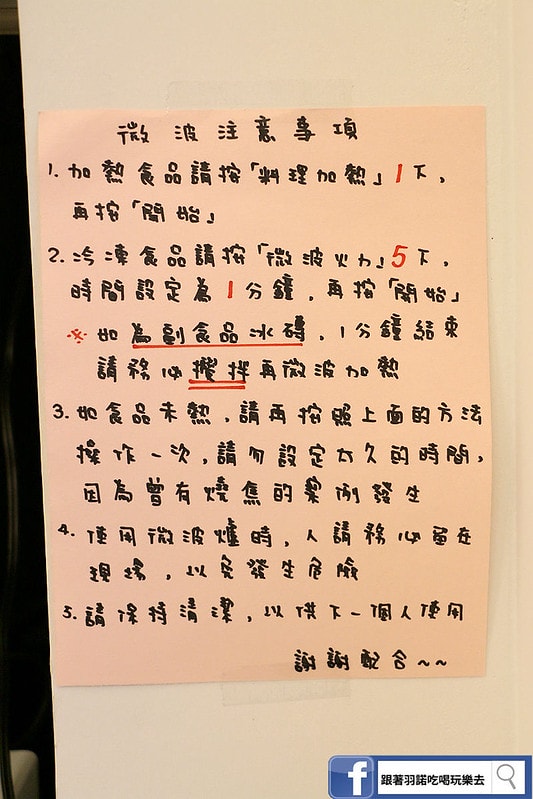 微波注意事項
1. 加熱食品請按「料理加熱」1下,
再按「開始」
2. 冷凍食品請按「微波火力」5下,
時間設定為1分鐘,再按「開始」
※如為副食品冰磚,1分鐘結束
請務必攪拌再微波加熱
3. 如食品未熱,請再按照上面的方法
操作一次,請勿設定太久的時間,
因為曾有燒焦的案例發生
4. 使用微波爐時,人請務必留在
現場,以免發生危險
5. 請保持清潔,以供下一個人使用
謝謝配合~~
f 跟著羽諾吃喝玩樂去